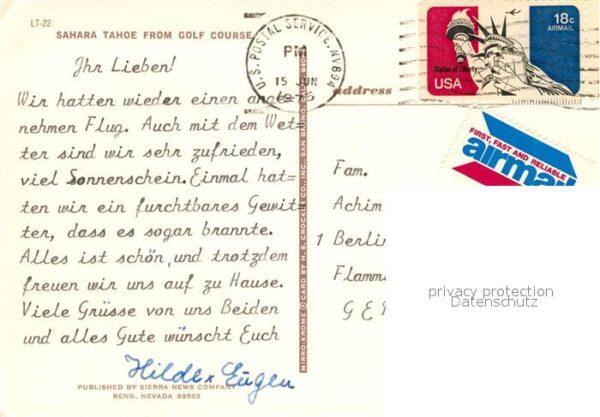 LT-22
SAHARA TAHOE FROM GOLF COURSE
Ihr Lieben!
Wir hatten wieder einen ange-
nehmen Flug. Auch mit dem Wet-
ter sind wir sehr zufrieden,
viel Sonnenschein. Einmal hat-
ten wir ein furchtbares Gewit-
ter, dass es sogar brannte.
Alles ist schön, und trotzdem
freuen wir uns auf zu Hause.
Viele Grüsse von uns Beiden
und alles Gute wünscht Euch
Hilde x Eugen
PUBLISHED BY SIERRA NEWS COMPANY
RENO, NEVADA 89502
MIRRO-KROME © CARD BY H. S. CROCKER CO., INC. SAN BRUNO
U.S. POSTAL SERVICE, NV 894
PM
15 JUN
1975
18c
AIRMAIL
Statue of Liberty
USA
address
FIRST, FAST AND RELIABLE
airmail
Fam.
Achim
1 Berlin
Flamm
GE
privacy protection
Datenschutz